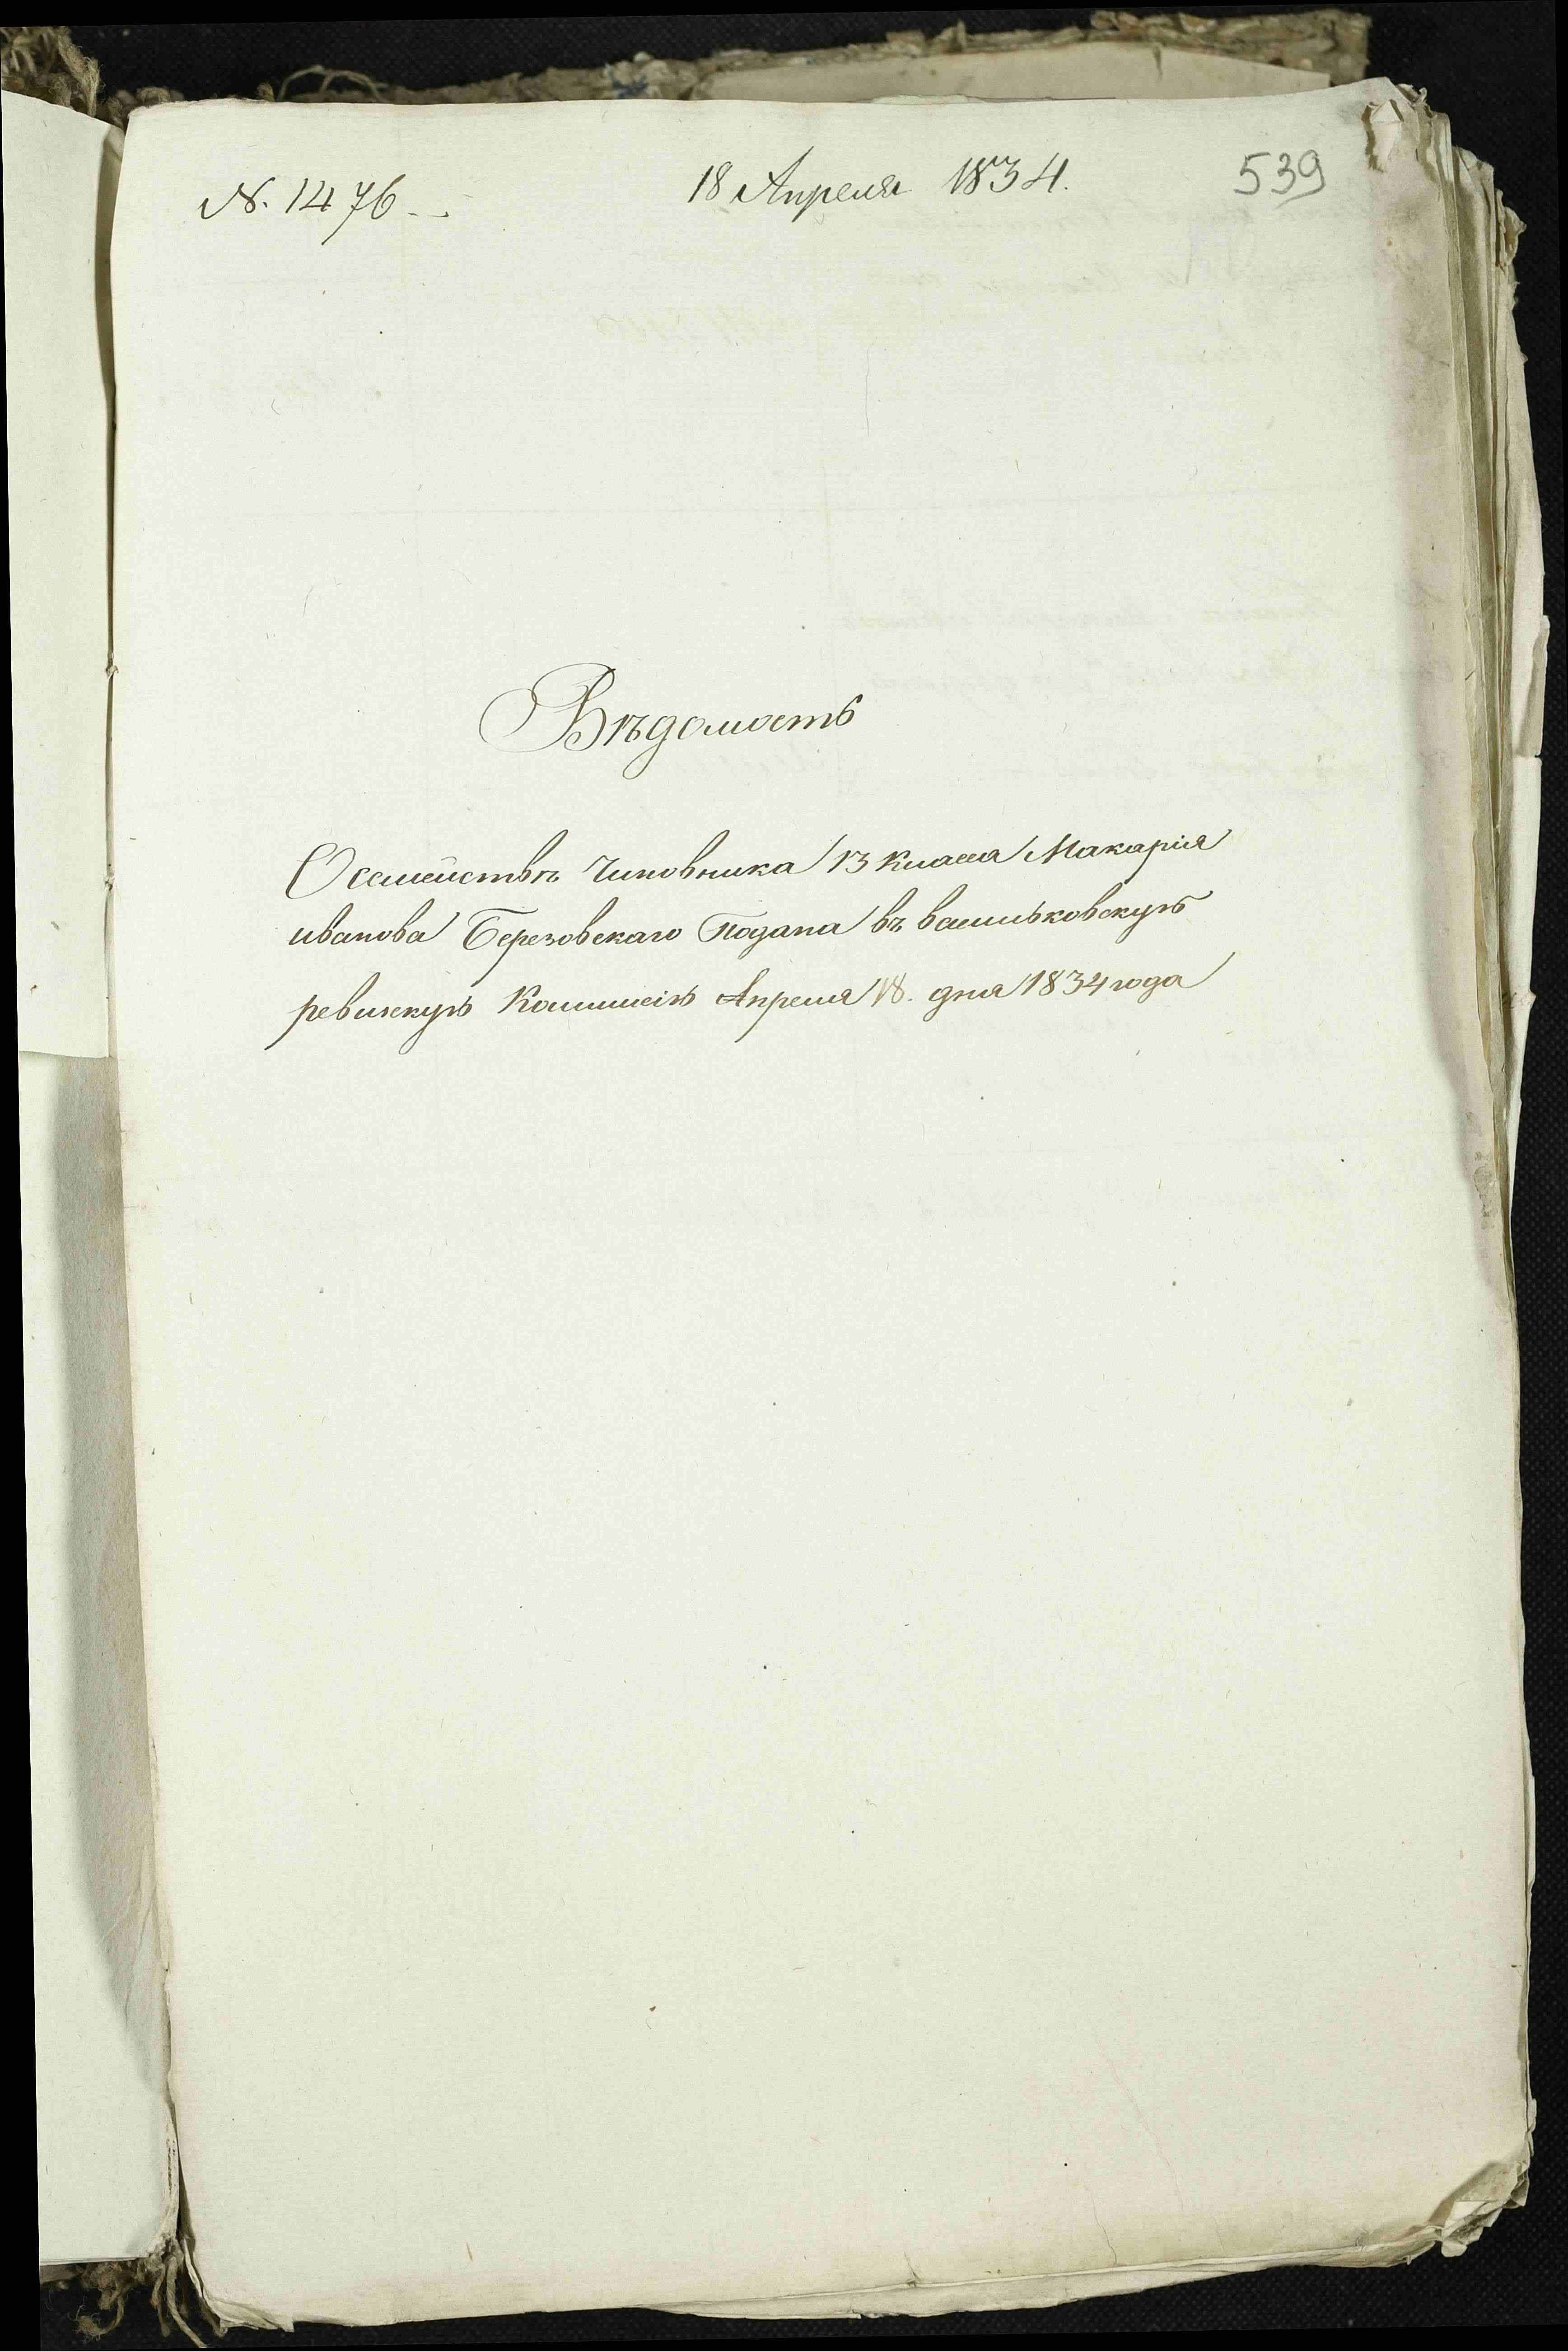 N. 1476
18 Апреля 1834.
539
Вѣдомость
О семействѣ Чиновника 13 класса Макарія
иванова Березовскаго Подана въ васильковскую
ревизскую Коммисію Апреля 18. дня 1834 года